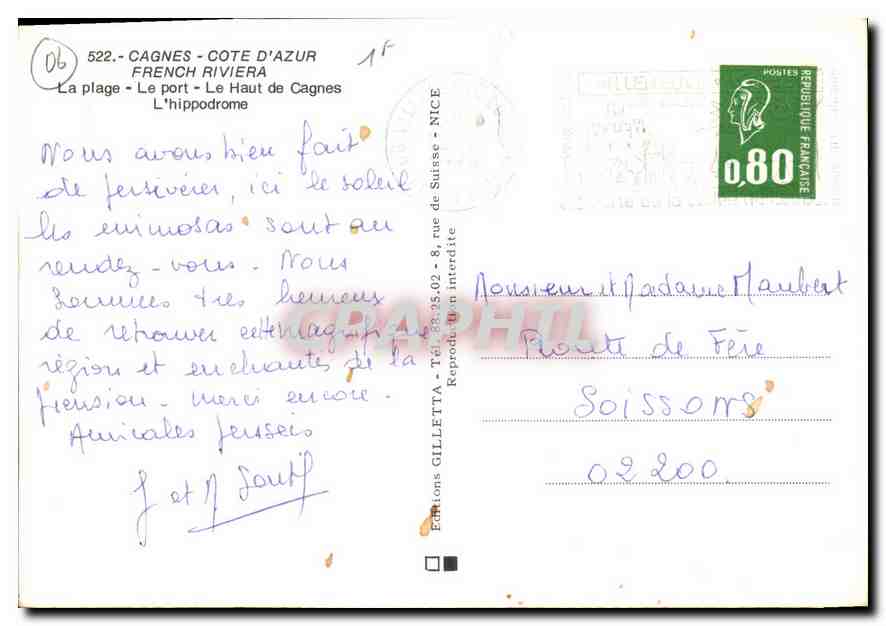 06
522.- CAGNES - COTE D'AZUR
FRENCH RIVIERA
La plage - Le port - Le Haut de Cagnes
L'hippodrome
1F
Nous avons bien fait
de persévérer, ici le soleil
les mimosas sont au
rendez-vous. Nous
sommes très heureux
de retrouver cette magnifique
région et enchantés de la
pension. Merci encore.
Amicales pensées
J et M
Editions GILLETTA - Tél. 88.25.02 - 8, rue de Suisse - NICE
Reproduction interdite
POSTES
REPUBLIQUE FRANÇAISE
0,80
Monsieur et Madame Maubert
Route de Fère
SOISSONS
02200.
CPAPHIL